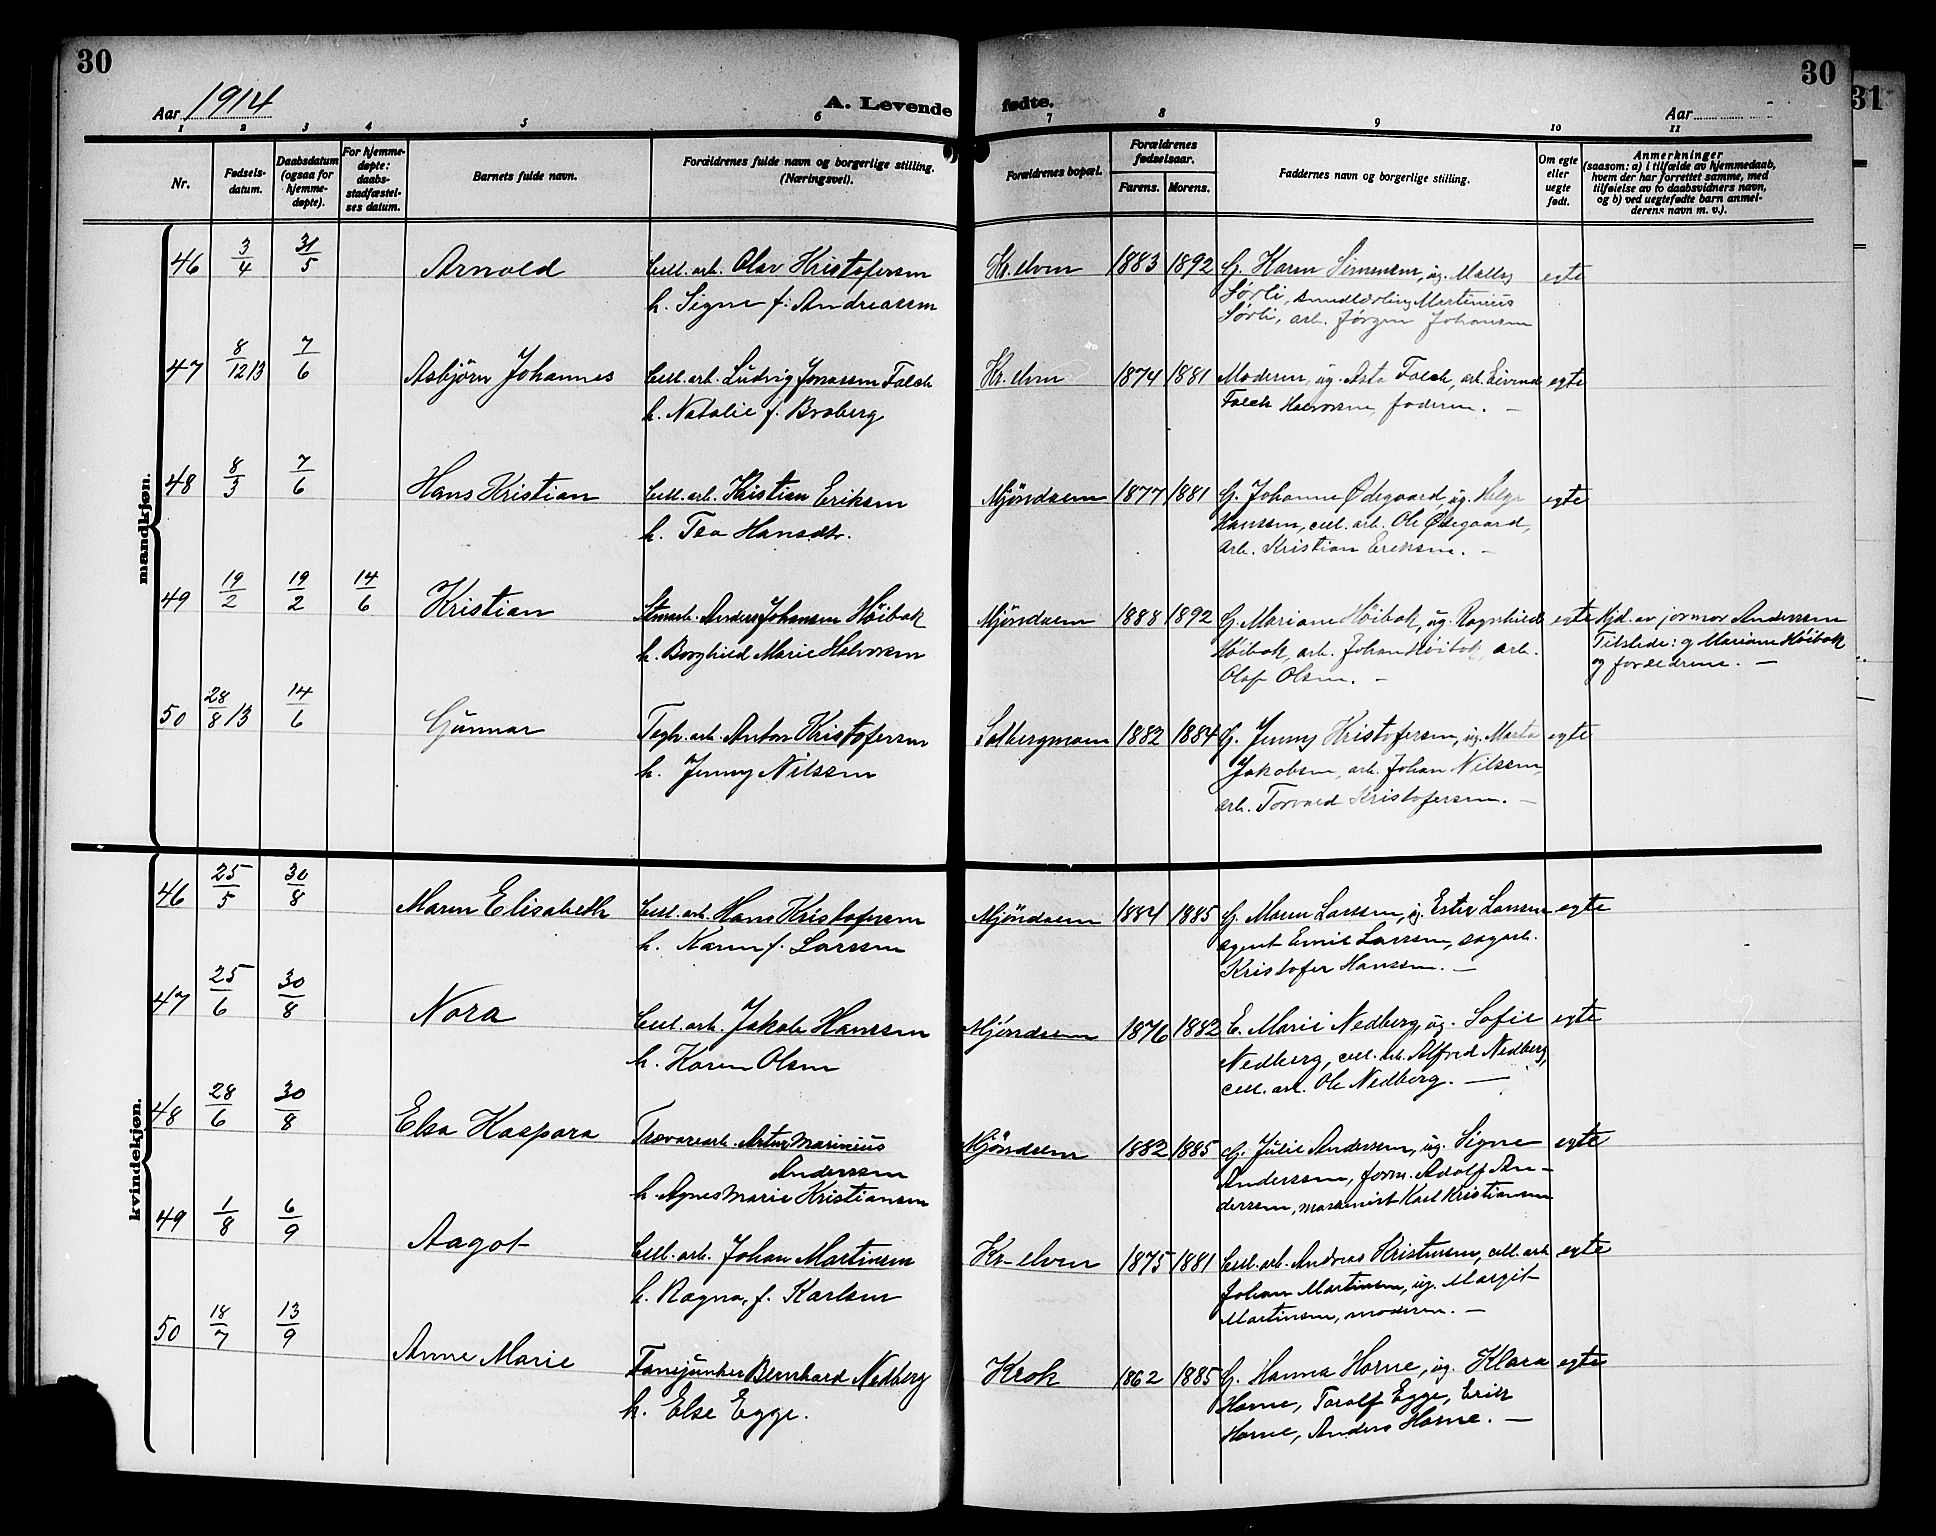 30
30
31
Aar 1914
A. Levende fødte.
Aar
1 2 3 4 5 6 7 8 9 10 11
Nr.
Fødsels-
datum.
Daabsdatum
(ogsaa for
hjemme-
døpte).
For hjemme-
døpte:
daabs-
stadfæstel-
ses datum.
Barnets fulde navn.
Forældrenes fulde navn og borgerlige stilling.
(Næringsvei).
Forældrenes bopæl.
Forældrenes
fødselsaar.
Farens. Morens.
Faddernes navn og borgerlige stilling.
Om egte
eller
uegte
født.
Anmerkninger
(saasom: a) i tilfælde av hjemmedaab,
hvem der har forrettet samme, med
tilføielse av to daabsvidners navn,
og b) ved uegtefødte barn anmel-
derens navn m. v.).
mandkjøn.
46 3/4 31/5 Arnold Cell. arb. Olav Kristofersen Kr. elven 1883 1892 G. Karen Simensen, ug. Sørli, egte
h. Signe f. Andreassen
Martinius
Sørli, arb. Jörgen Johansen
47 8/12 13 7/6 Asbjörn Johannes Cell. arb. Ludvig Jonassen Falch Kr. elven 1874 1881 Moderen, ug. Asta Falch, arb. Eivind egte
h. Natalie f. Broberg Falch Halvorsen, faderen. —
48 8/3 7/6 Hans Kristian Cell. arb. Kristian Eriksen Mjöndalen 1877 1881 G. Johanne Ødegaard, ug. Helga egte
h. Tea Hansdt. Hanssen, cell. arb. Ole Ødegaard,
arb. Kristian Eriksen. —
49 19/2 19/2 14/6 Kristian Anders Johansen Höibak Mjöndalen 1888 1892 G. Mariane Höibak, ug. Ragnhild egte Hjd. av jormor Anderssen
h. Borghild Marie Halvorsen Höibak, arb. Johan Höibak, arb. Tilstede: g Mariane Höibak
Olaf Olsen. — og forældrene. —
50 28/8 13 14/6 Gunnar Teglv. arb. Anton Kristofersen Solbergmoen 1882 1884 G. Jenny Kristofersen, ug. Marta egte
h. Jenny Nilssen Jakobsen, arb. Johan Nilssen,
arb. Torvald Kristofersen. —
kvindekjøn.
46 25/5 30/8 Maren Elisabeth Cell. arb. Hans Kristofersen Mjöndalen 1884 1885 G. Maren Larssen, ug. Ester Larssen egte
h. Karen f. Larssen agent Emil Larssen, sagarb.
Kristofer Hanssen. —
47 25/6 30/8 Nora Cell. arb. Jakob Hanssen Mjöndalen 1876 1882 E. Marie Nedberg, ug. Sofie egte
h. Karen Olsen Nedberg, cell. arb. Alfred Nedberg,
cell. arb. Ole Nedberg. —
48 28/6 30/8 Elsa Kaspara Trævarearb. Artur Marinius Mjöndalen 1882 1885 G. Julie Anderssen, ug. Signe egte
Anderssen Anderssen, form. Adolf An-
h. Agnes Marie Kristiansen derssen, maskinist Karl Kristiansen
49 1/8 6/9 Aagot Cell. arb. Johan Martinsen Kr. elven 1875 1881 Cell. arb. Andreas Kristensen, cell. arb. egte
h. Ragna, f. Karlsen Johan Martinsen, ug. Margit
Martinsen, moderen. —
50 18/7 13/9 Anne Marie Fanejunker Bernhard Nedberg Krok 1862 1885 G. Hanna Horne, ug. Klara egte
h. Else Egge. Horne, Toralf Egge, Erik
Horne, Anders Horne. —